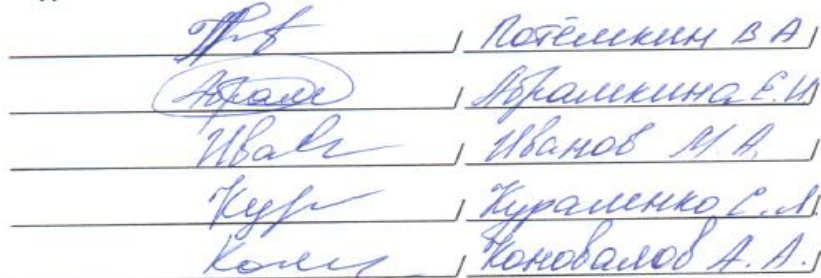 / Потёмкин В А /
Абрам / Абрамкина Е.И /
Ива / Иванов М.А. /
Кур / Кураленко С.А. /
Кон / Коновалов А.А. /